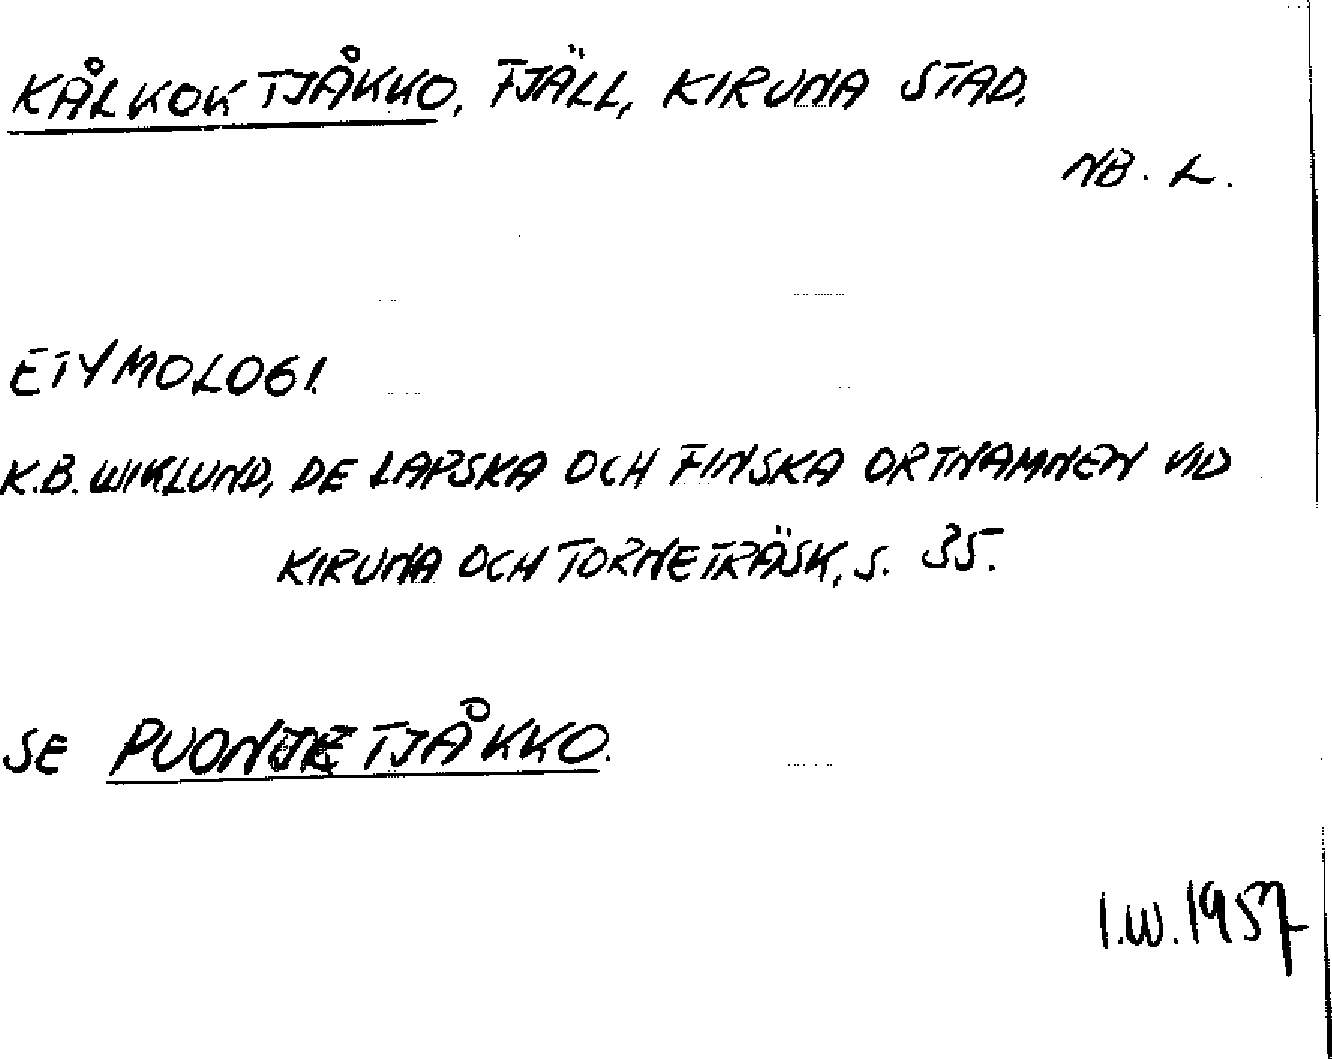 KÅLKOK TJÅKKO, FJÄLL, KIRUNA STAD.
NB. L.
ETYMOLOGI.
K.B. WIKLUND, DE LAPSKA OCH FINSKA ORTNAMNEN VID
KIRUNA OCH TORNETRÄSK, S. 35.
SE PUONJE TJÅKKO.
I.W. 1957